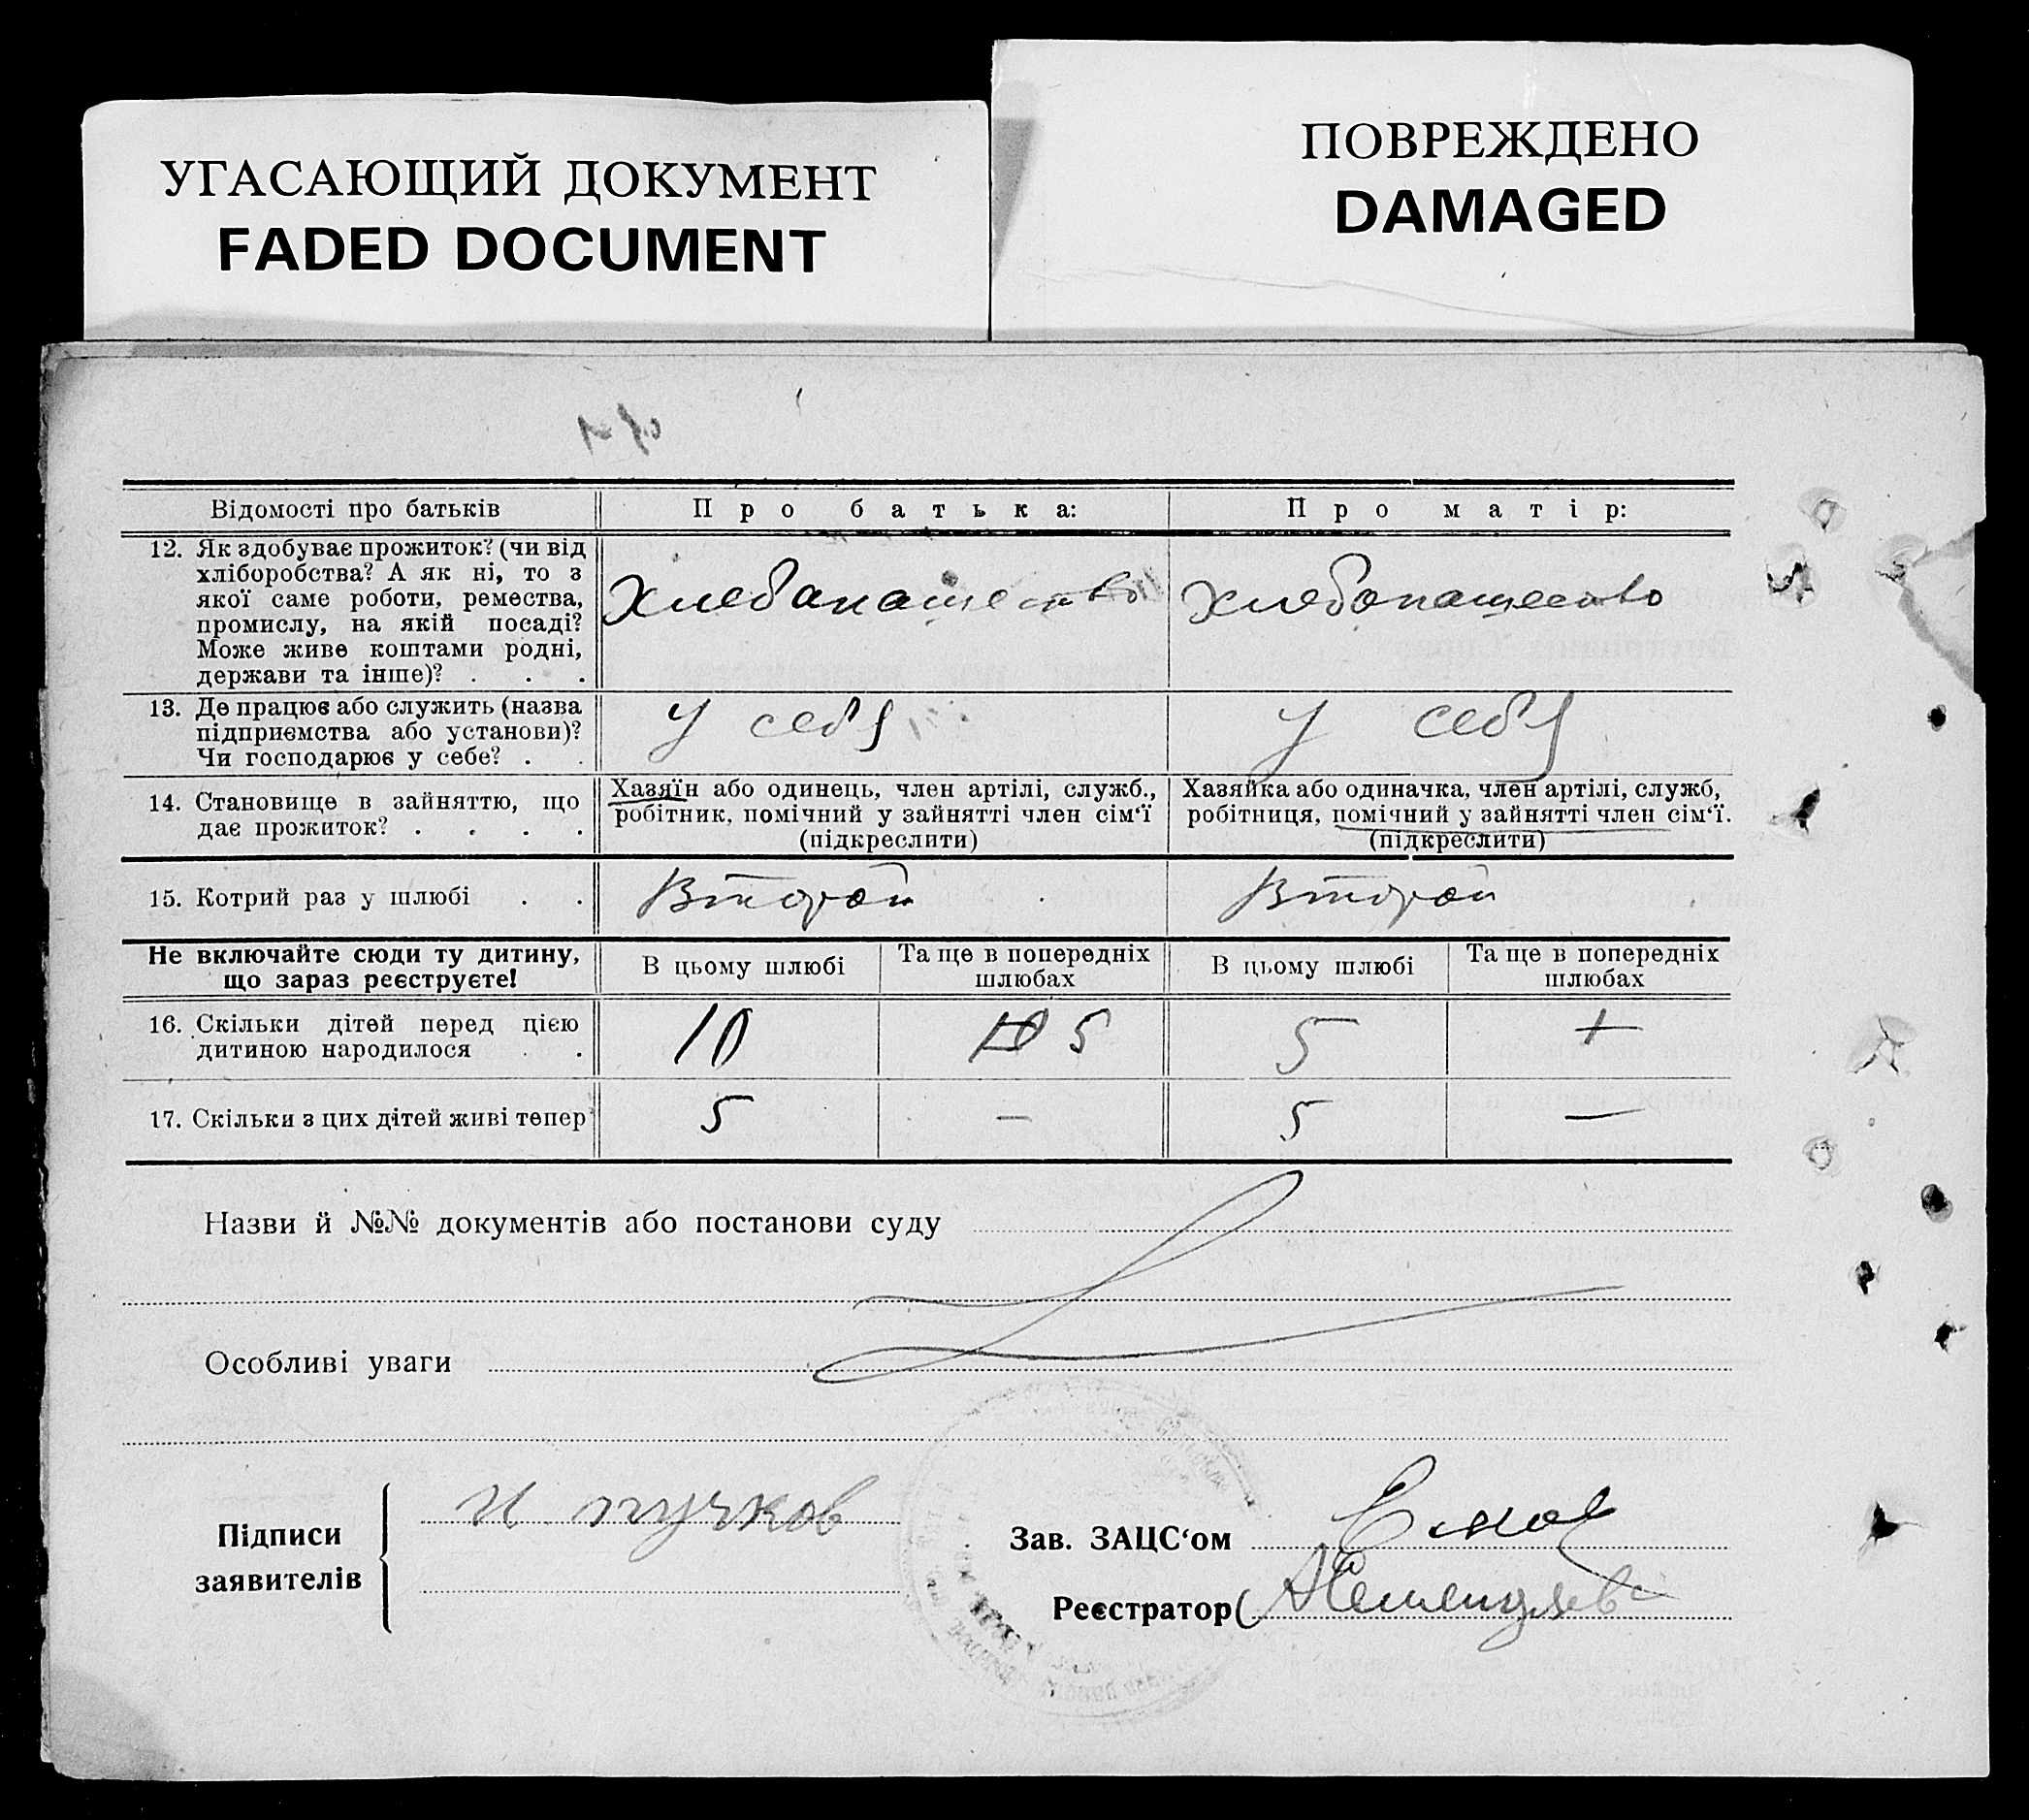 УГАСАЮЩИЙ ДОКУМЕНТ
FADED DOCUMENT
ПОВРЕЖДЕНО
DAMAGED
Відомості про батьків
Про батька:
Про матір:
12. Як здобуває прожиток? (чи від
хліборобства? А як ні, то з
якої саме роботи, ремества,
промислу, на якій посаді?
Може живе коштами родні,
держави та інше)? . . .
Хлебапашество
Хлебопашество
13. Де працює або служить (назва
підприємства або установи)?
Чи господарює у себе? . .
У себя
У себя
14. Становище в зайняттю, що
дає прожиток? . . . .
Хазяїн або одинець, член артілі, служб.,
робітник, помічний у зайнятті член сім‘ї
(підкреслити)
Хазяйка або одиначка, член артілі, служб,
робітниця, помічний у зайнятті член сім‘ї.
(підкреслити)
15. Котрий раз у шлюбі . .
Второй
Второй
Не включайте сюди ту дитину,
що зараз реєструєте!
В цьому шлюбі
Та ще в попередніх
шлюбах
В цьому шлюбі
Та ще в попередніх
шлюбах
16. Скільки дітей перед цією
дитиною народилося . .
10
10 5
5
+
17. Скільки з цих дітей живі тепер
5
—
5
—
Назви й №№ документів або постанови суду
Особливі уваги
Підписи
заявителів
и пучков
Зав. ЗАЦС‘ом
Реєстратор